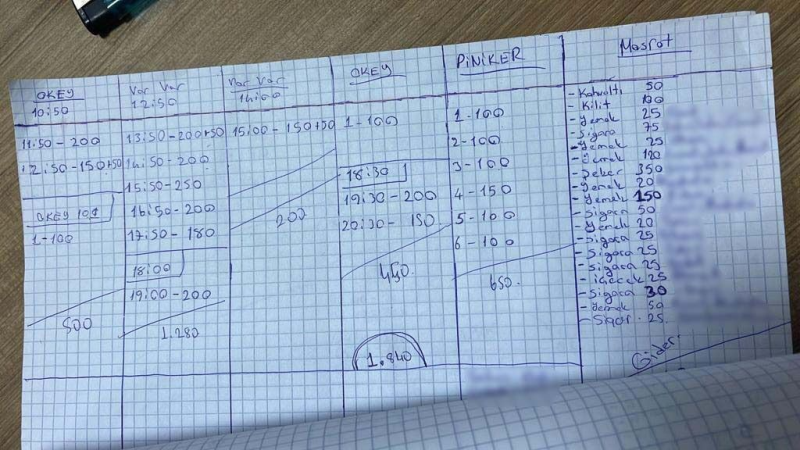 OKEY
10:50
11:50 - 200
12:50 - 150+50
OKEY 101
1 - 100
500
Var Var
12:50
13:50 - 200+50
14:50 - 200
15:50 - 250
16:50 - 200
17:50 - 180
18:00
19:00 - 200
1.280
Var Var
14:00
15:00 - 150+50
200
OKEY
1 - 100
18:30
19:30 - 200
20:30 - 150
450
1.840
PiNiKER
1 - 100
2 - 100
3 - 100
4 - 150
5 - 100
6 - 100
650.
Masrat
- Kahvaltı 50
- Kilit 100
- Yemek 25
- Sigara 75
- Yemek 25
- Yemek 120
- Şeker 350
- Yemek 20
- Yemek 150
- Sigara 50
- Yemek 20
- Sigara 25
- Sigara 25
- Sigara 25
- içecek 25
- Sigara 30
- Yemek 50
- Sigar. 25
Gider.